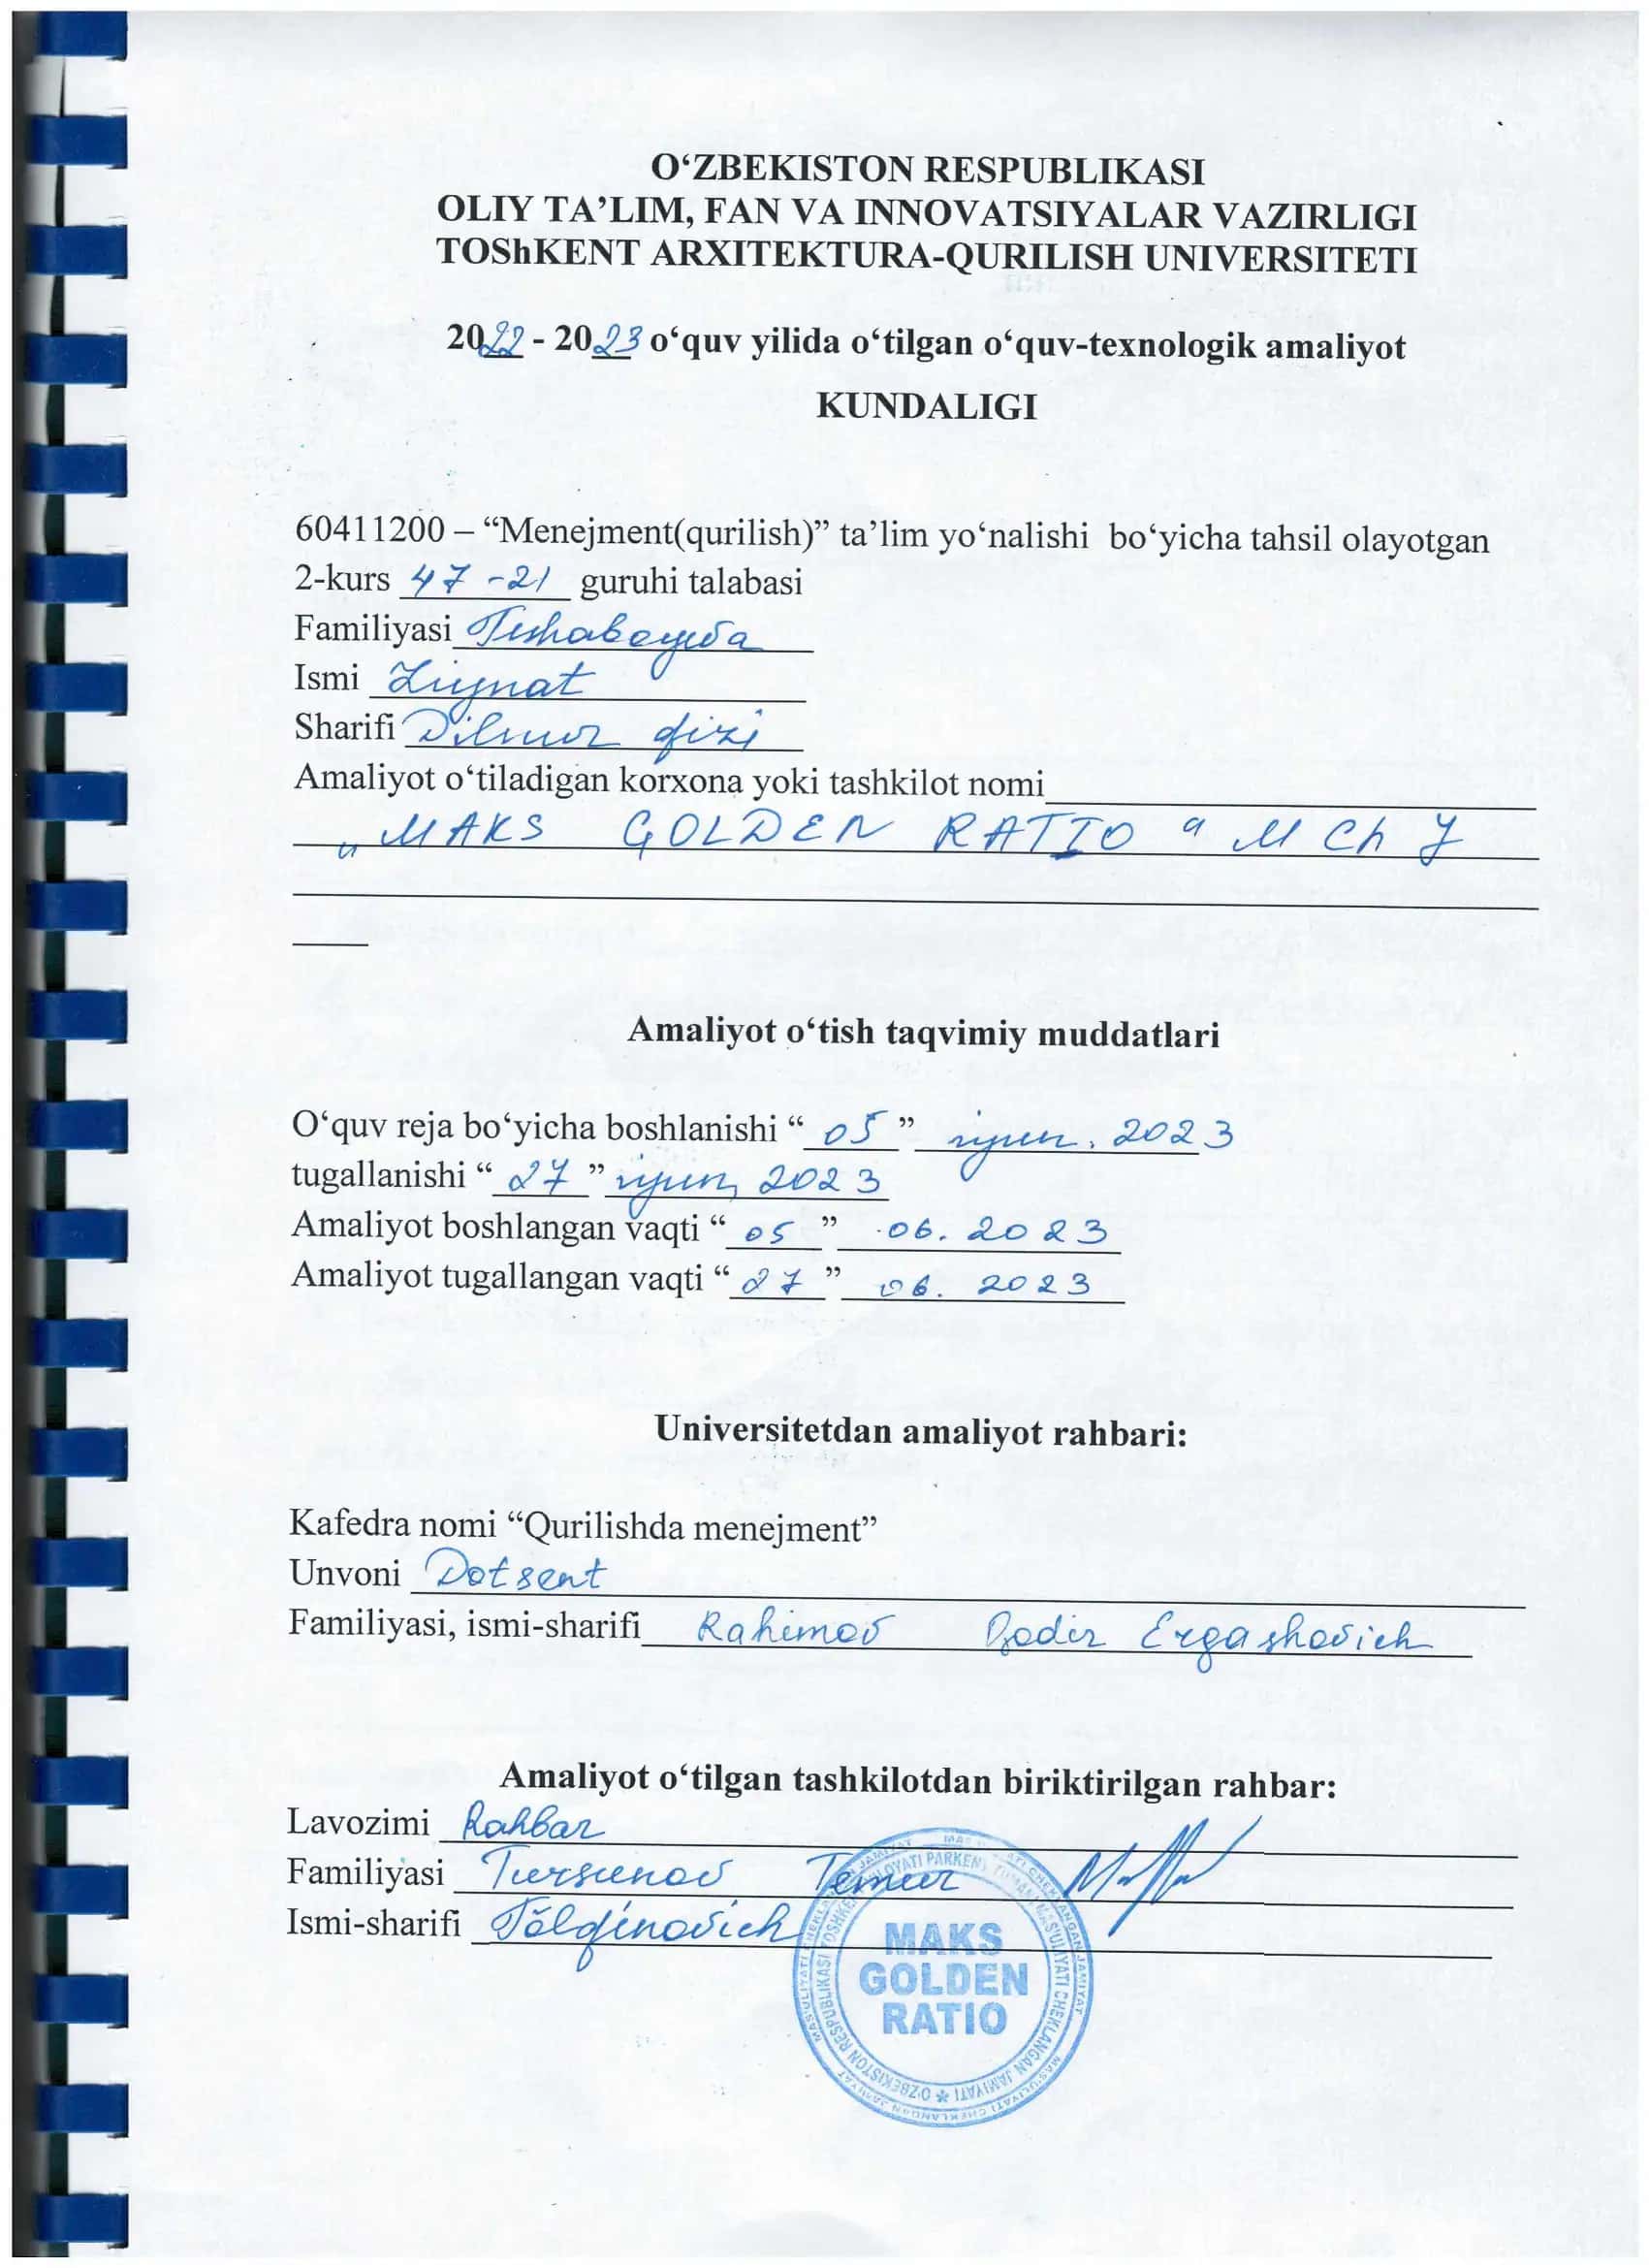 O‘ZBEKISTON RESPUBLIKASI
OLIY TA’LIM, FAN VA INNOVATSIYALAR VAZIRLIGI
TOShKENT ARXITEKTURA-QURILISH UNIVERSITETI
2022 - 2023 o‘quv yilida o‘tilgan o‘quv-texnologik amaliyot
KUNDALIGI
60411200 – “Menejment(qurilish)” ta’lim yo‘nalishi bo‘yicha tahsil olayotgan
2-kurs 47-21 guruhi talabasi
Familiyasi Teshaboyeva
Ismi Ziynat
Sharifi Dilmur qizi
Amaliyot o‘tiladigan korxona yoki tashkilot nomi
„MAKS GOLDEN RATIO“ MChJ
Amaliyot o‘tish taqvimiy muddatlari
O‘quv reja bo‘yicha boshlanishi “05” iyun. 2023
tugallanishi “27” iyun, 2023
Amaliyot boshlangan vaqti “05” .06.2023
Amaliyot tugallangan vaqti “27” 06.2023
Universitetdan amaliyot rahbari:
Kafedra nomi “Qurilishda menejment”
Unvoni Dotsent
Familiyasi, ismi-sharifi Rahimov Qodir Ergashovich
Amaliyot o‘tilgan tashkilotdan biriktirilgan rahbar:
Lavozimi Rahbar
Familiyasi Tursunov Temur
Ismi-sharifi Tõlqinovich
MAKS
GOLDEN
RATIO
O'ZBEKISTON RESPUBLIKASI TOSHKENT VILOYATI PARKENT TUMANI MAS'ULIYATI CHEKLANGAN JAMIYATI